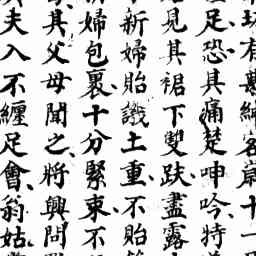 有
十一
足、恐其痛楚呻吟、特
見其裙下雙趺盡露
新婦貽譏土重、不貽
婦包裏十分緊束不
其父母聞之、將興問
夫入不纏足會、翁姑